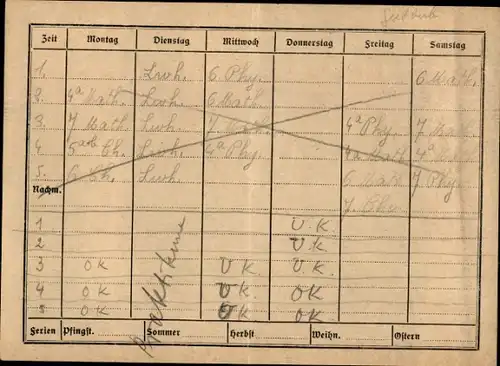 Zeit Montag Dienstag Mittwoch Donnerstag Freitag Samstag
1. Lwh. 6 Phy. 6 Math.
2. 4a Math. Lwh. 6 Math.
3. 7 Math. Lwh. 7 Math. 4a Phy. 7 Math.
4. 5ab Ch. Lwh. 4a Phy. 4a Math. 4a
5. 6 Ch. Lwh. 6 Math. 7 Phy.
Nachm. 7.
1 U.K.
2 U.K.
3 OK U K. U.K.
4 OK U K. OK
5 OK U K. OK
Praktikum
Ferien Pfingst. Sommer Herbst. Weihn. Ostern